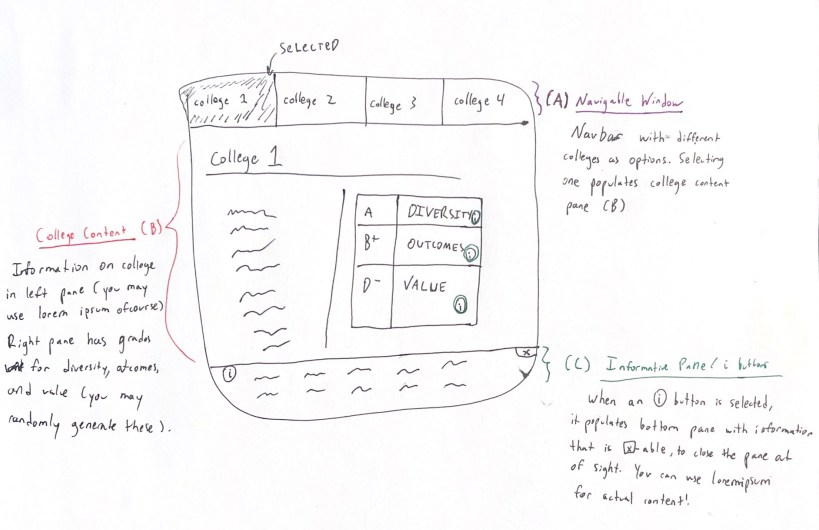 SELECTED
college 1
college 2
college 3
college 4
(A) Navigable Window
Navbar with different
colleges as options. Selecting
one populates college content
pane (B)
College 1
A DIVERSITY i
B+ OUTCOMES i
D- VALUE i
College Content (B)
Information on college
in left pane (you may
use lorem ipsum ofcourse)
Right pane has grades
for diversity, outcomes,
and value (you may
randomly generate these).
i
x
(C) Informative Pane / i buttons
When an i button is selected,
it populates bottom pane with information
that is x-able, to close the pane out
of sight. You can use loremipsum
for actual content!